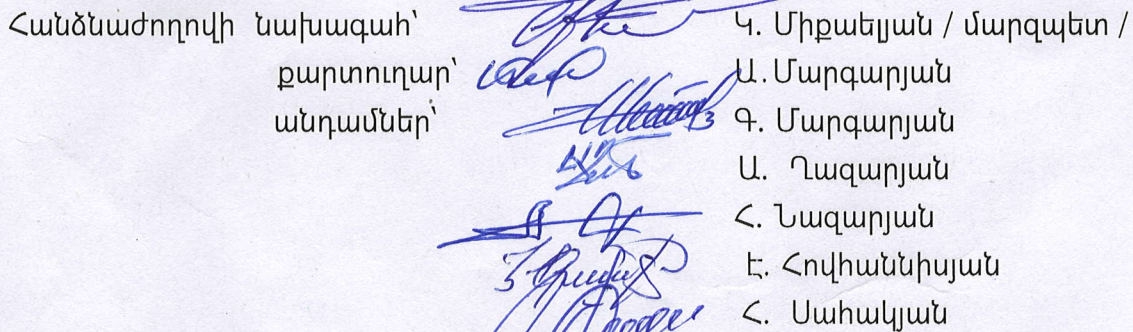 Հանձնաժողովի նախագահ՝ Կ. Միքաելյան / մարզպետ /
քարտուղար՝ Ա.Մարգարյան
անդամներ՝ Գ. Մարգարյան
Ա. Ղազարյան
Հ. Նազարյան
Է. Հովհաննիսյան
Հ. Սահակյան